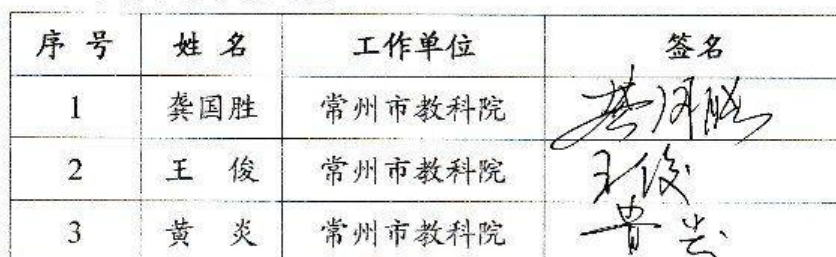 序 号 姓 名 工作单位 签名
1 龚国胜 常州市教科院 龚国胜
2 王 俊 常州市教科院 王俊
3 黄 炎 常州市教科院